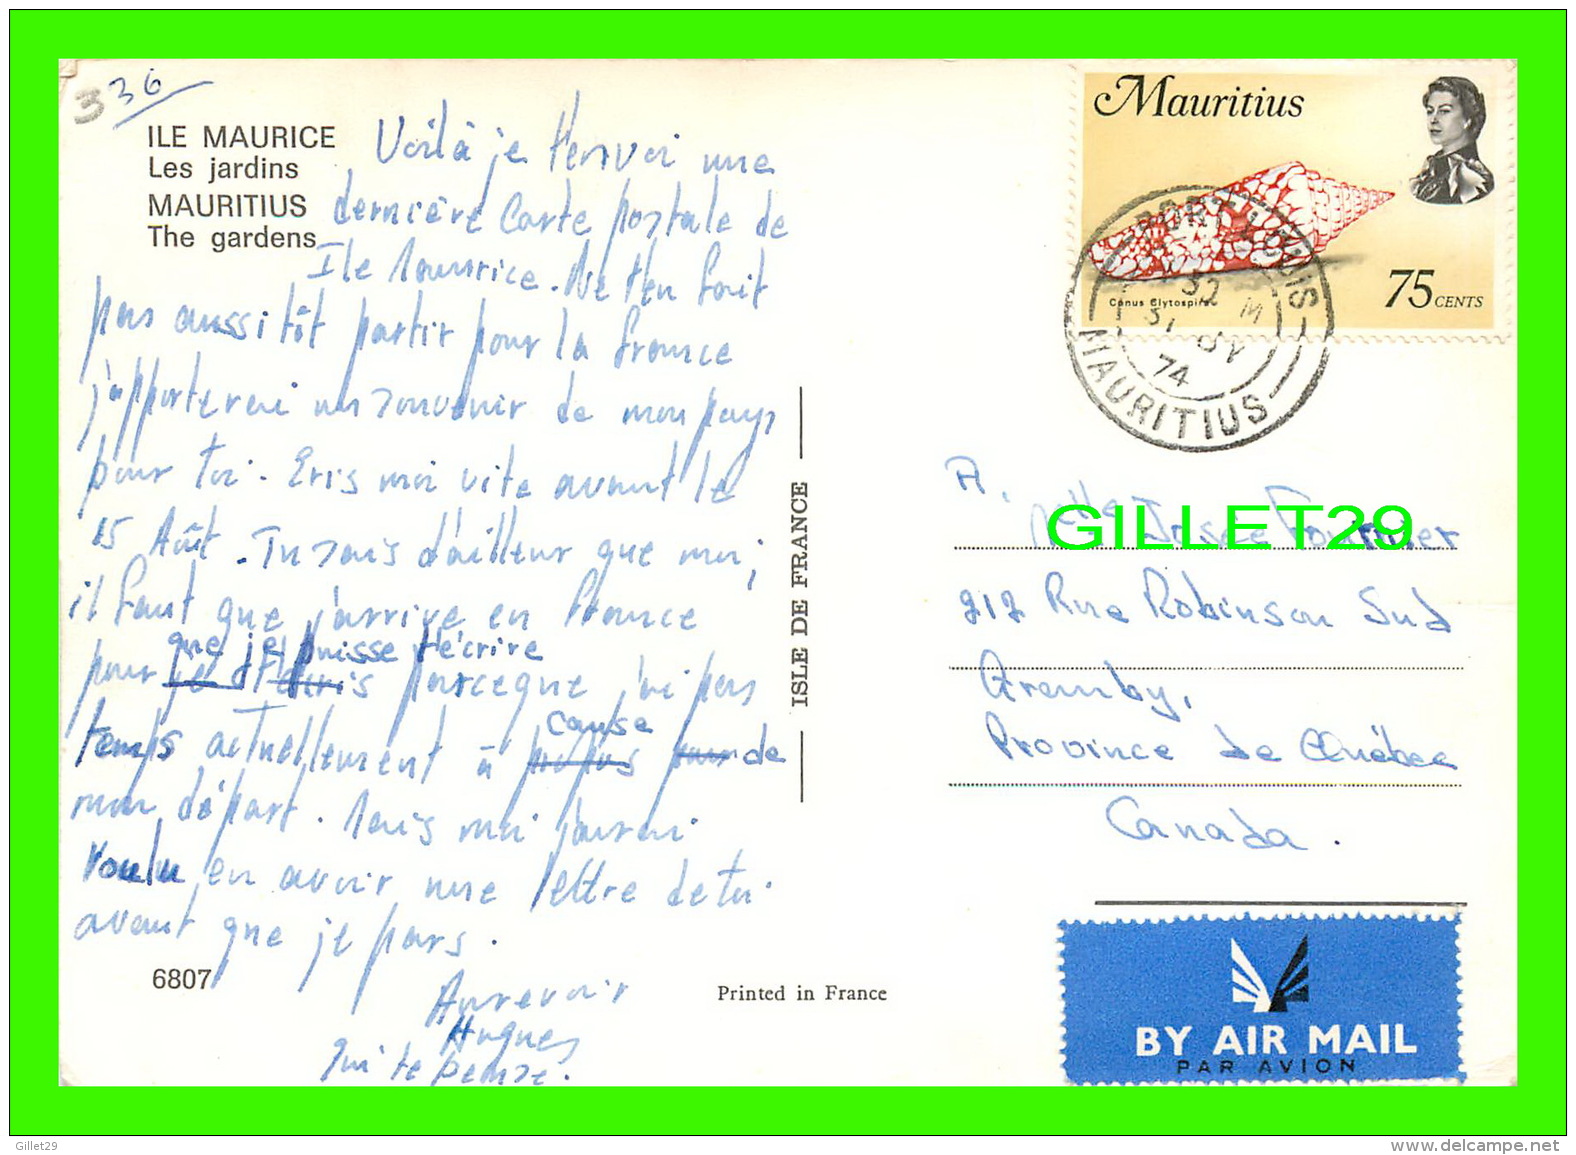 336
ILE MAURICE
Les jardins
MAURITIUS
The gardens
Voilà je t'envoi une
dernière Carte postale de
Ile Maurice. Ne t'en fait
pas aussitôt partir pour la France
j'apporterai un souvenir de mon pays
pour toi. Eris moi vite avant le
15 Août. Tu sais d'ailleur que moi,
il faut que j'arrive en France
que je puisse t'écrire
pour je t'écris parceque j'ai pas
cause
temps actuellement à de
mon départ. Mais moi j'aurai
voulu en avoir une lettre de toi
avant que je pars.
Aurevoir
Hugues
qui te pense.
6807
Printed in France
ISLE DE FRANCE
Mauritius
Conus Clytospira
75 CENTS
PORT LOUIS
32 M
31
74
MAURITIUS
A.
Melle Josée Fournier
GILLET29
212 Rue Robinson Sud
Granby,
Province de Québec
Canada.
BY AIR MAIL
PAR AVION
Gillet29
www.delcampe.net